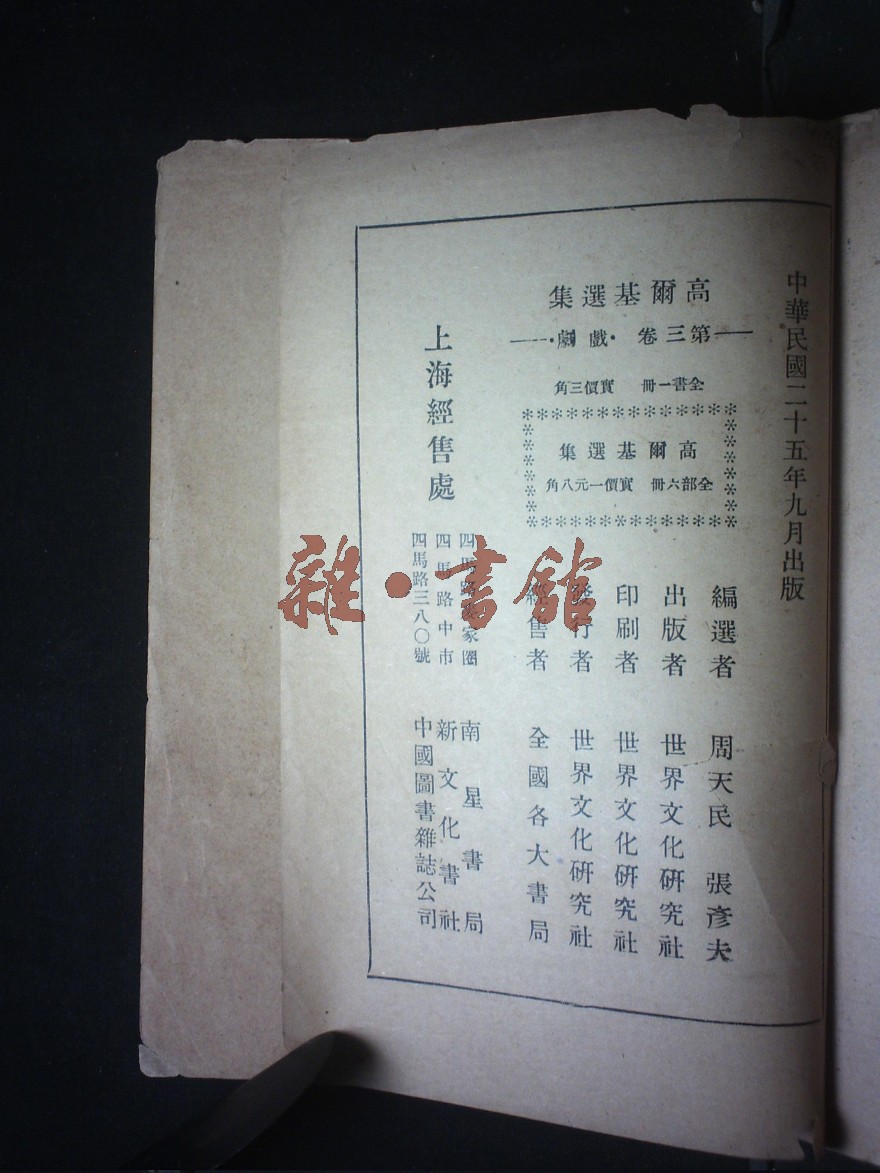 中華民國二十五年九月出版
高爾基選集
第三卷·戲劇·
全書一冊 實價三角
高爾基選集
全部六冊 實價一元八角
編選者 周天民 張彥夫
出版者 世界文化研究社
印刷者 世界文化研究社
發行者 世界文化研究社
經售者 全國各大書局
上海經售處
四馬路 家圈 南星書局
四馬路中市 新文化書社
四馬路三八〇號 中國圖書雜誌公司
雜·書館